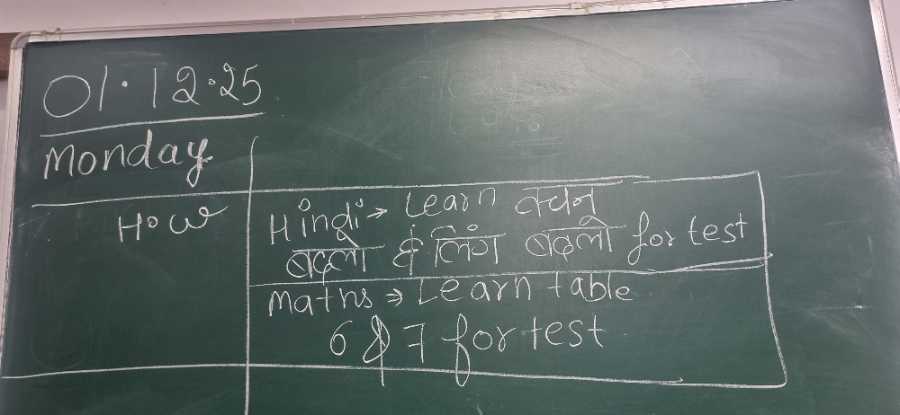 01.12.25
Monday
H.W
Hindi → Learn वचन
बदलो & लिंग बदलो for test
Maths → Learn table
6 & 7 for test